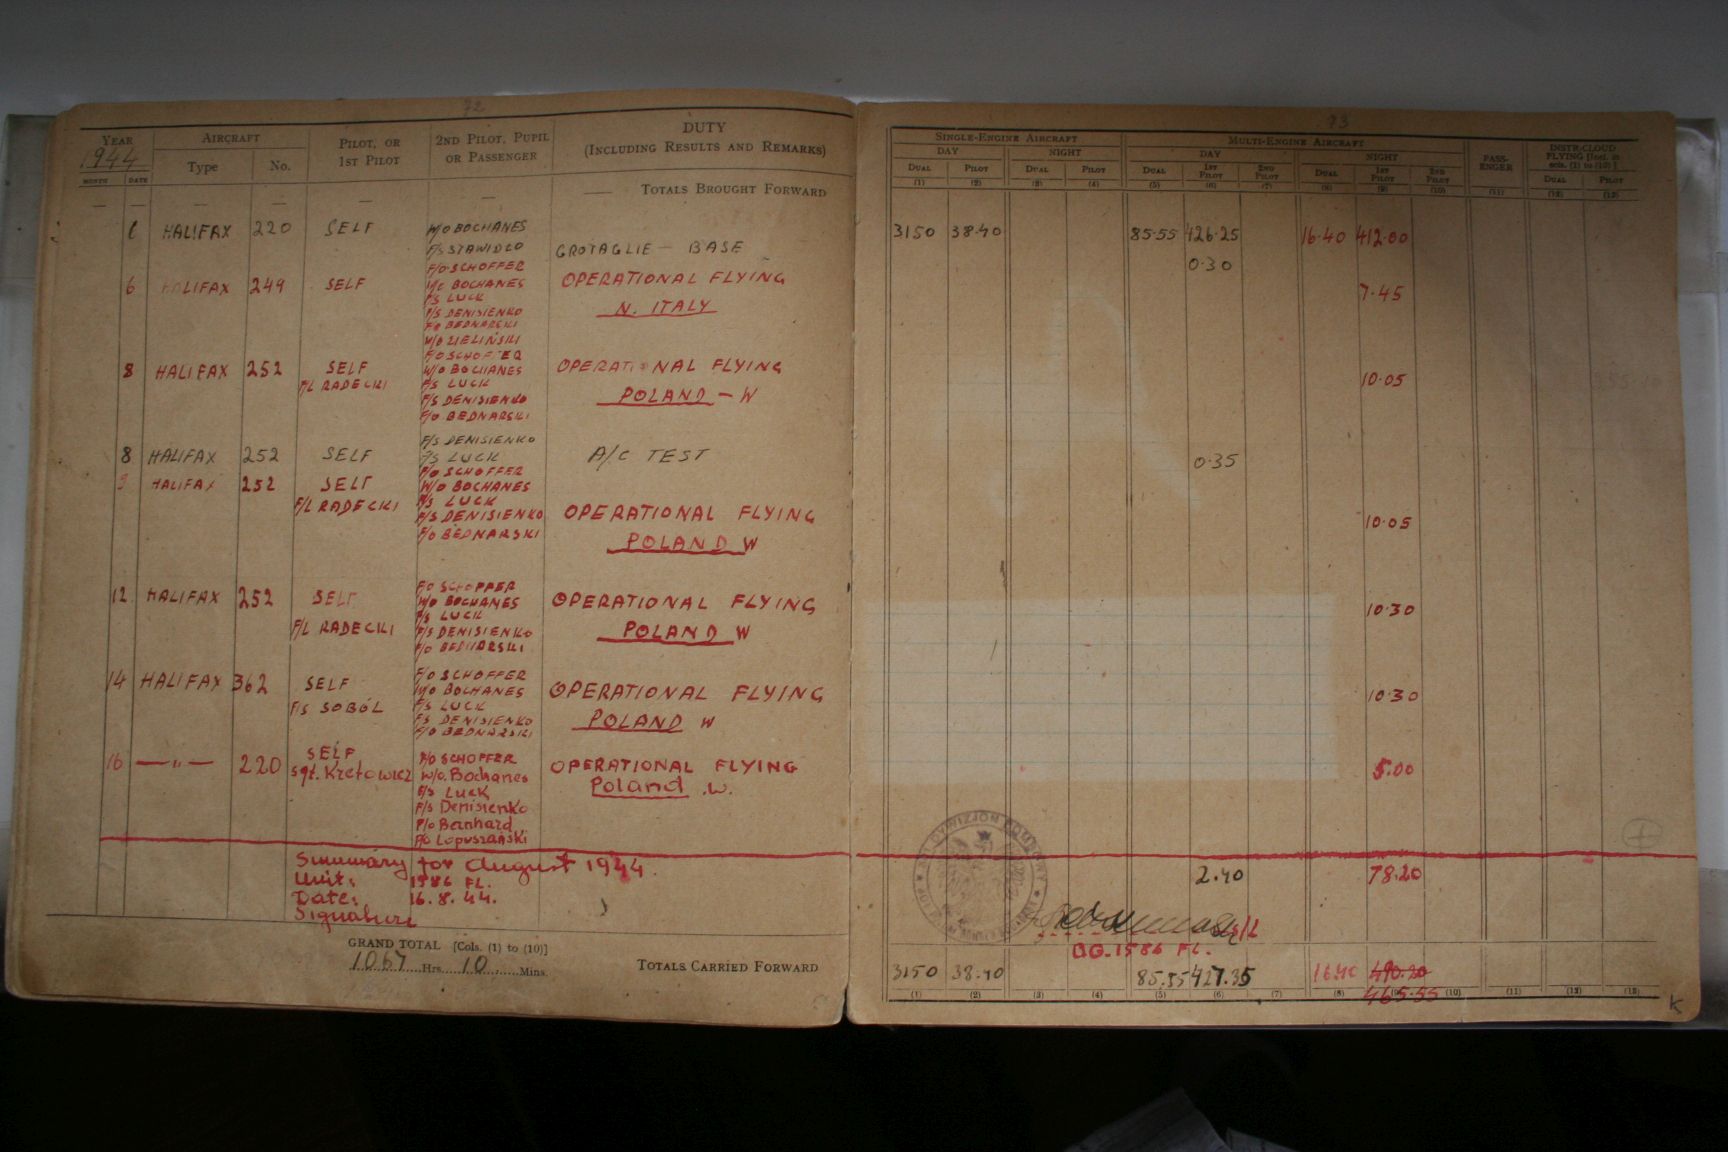 72
YEAR
1944
AIRCRAFT
Type
No.
MONTH
DATE
PILOT, OR
1ST PILOT
2ND PILOT, PUPIL
OR PASSENGER
DUTY
(INCLUDING RESULTS AND REMARKS)
— — — — — —— TOTALS BROUGHT FORWARD
6 HALIFAX 220 SELF W/O BOCHANES
F/S STAWIDŁO GROTAGLIE — BASE
6 HALIFAX 249 SELF
F/O SCHOFFER
BOCHANES
F/S LUCK
F/S DENISIENKO
F/O BEDNARSKI
W/O ZIELIŃSKI
OPERATIONAL FLYING
N. ITALY
8 HALIFAX 252 SELF
F/L RADECKI
F/O SCHOFFER
W/O BOCHANES
F/S LUCK
F/S DENISIENKO
F/O BEDNARSKI
OPERATIONAL FLYING
POLAND — W
8 HALIFAX 252 SELF
F/S DENISIENKO
F/S LUCK
A/C TEST
9 HALIFAX 252 SELF
F/L RADECKI
F/O SCHOFFER
W/O BOCHANES
F/S LUCK
F/S DENISIENKO
F/O BEDNARSKI
OPERATIONAL FLYING
POLAND W
12 HALIFAX 252 SELF
F/L RADECKI
F/O SCHOFFER
W/O BOCHANES
F/S LUCK
F/S DENISIENKO
F/O BEDNARSKI
OPERATIONAL FLYING
POLAND W
14 HALIFAX 362 SELF
F/S SOBÓL
F/O SCHOFFER
W/O BOCHANES
F/S LUCK
F/S DENISIENKO
F/O BEDNARSKI
OPERATIONAL FLYING
POLAND W
16 —"— 220 SELF
Sgt. Kretowicz
F/O SCHOFFER
W/O. Bochanes
F/S Luck
F/S Denisienko
P/O Bernhard
F/O Łopuszański
OPERATIONAL FLYING
Poland .W.
Summary for August 1944.
Unit: 1586 FL.
Date: 16. 8. 44.
Signature
GRAND TOTAL [Cols. (1) to (10)]
1067 Hrs. 10 Mins.
TOTALS CARRIED FORWARD
73
SINGLE-ENGINE AIRCRAFT
MULTI-ENGINE AIRCRAFT
PASS-
ENGER
INSTR/CLOUD
FLYING [Incl. in
cols. (1) to (10)]
DAY NIGHT DAY NIGHT
DUAL PILOT DUAL PILOT DUAL 1ST PILOT 2ND PILOT DUAL 1ST PILOT 2ND PILOT DUAL PILOT
(1) (2) (3) (4) (5) (6) (7) (8) (9) (10) (11) (12) (13)
3150 38.40 85.55 426.25 16.40 412.00
0.30
7.45
10.05
0.35
10.05
10.30
10.30
5.00
2.40 78.20
S/L
OG. 1586 FL.
3150 38.40 85.55 427.35 16.40 490.20
465.55
(1) (2) (3) (4) (5) (6) (7) (8) (9) (10) (11) (12) (13)
K